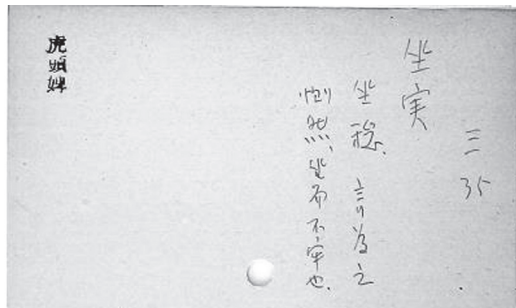 三 35
坐实
坐稳. 言为之
恻然, 坐而不牢也.
虎頭婢